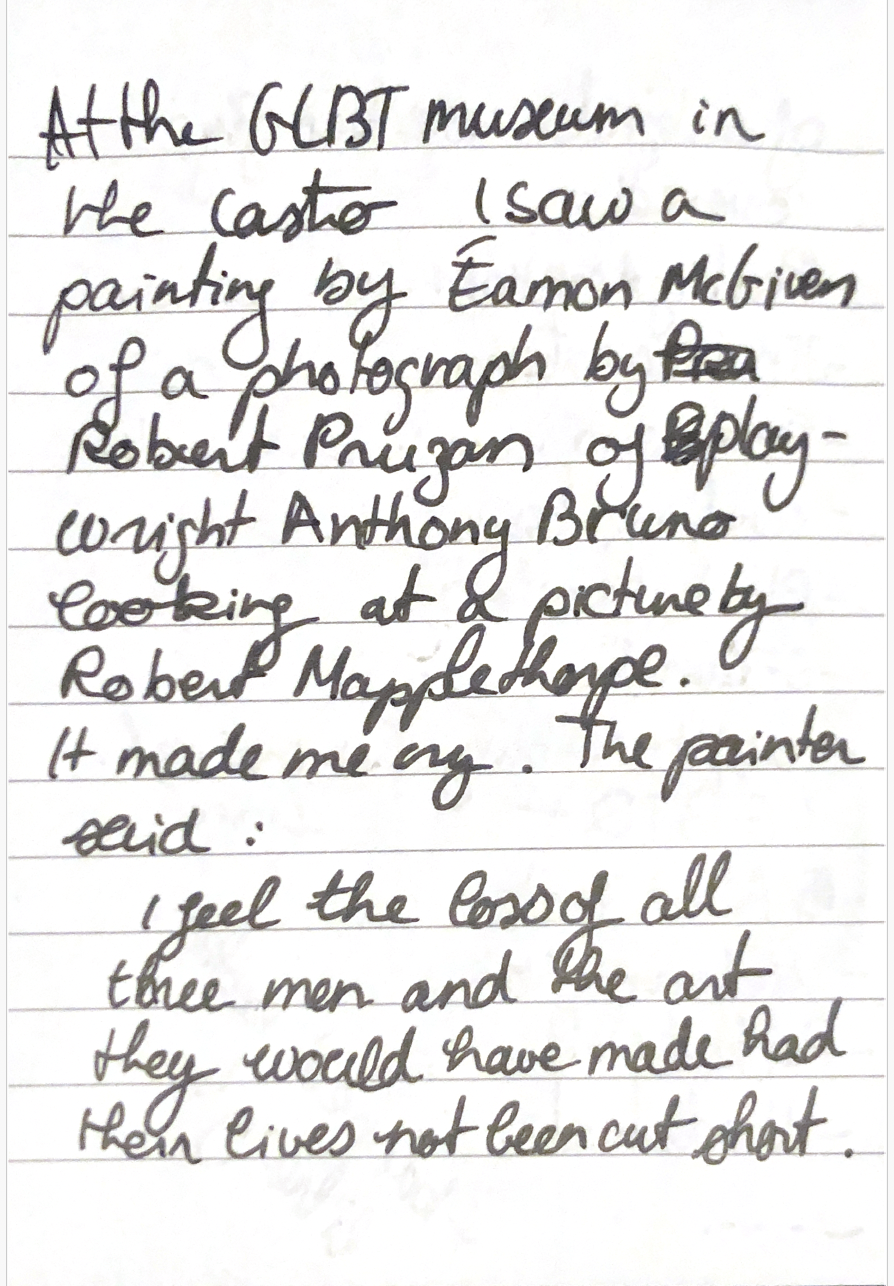 At the GLBT museum in
the Castro I saw a
painting by Éamon McGiven
of a photograph by
Robert Pruzan of play-
wright Anthony Bruno
looking at a picture by
Robert Mapplethorpe.
It made me cry. The painter
said :
I feel the loss of all
three men and the art
they would have made had
their lives not been cut short.